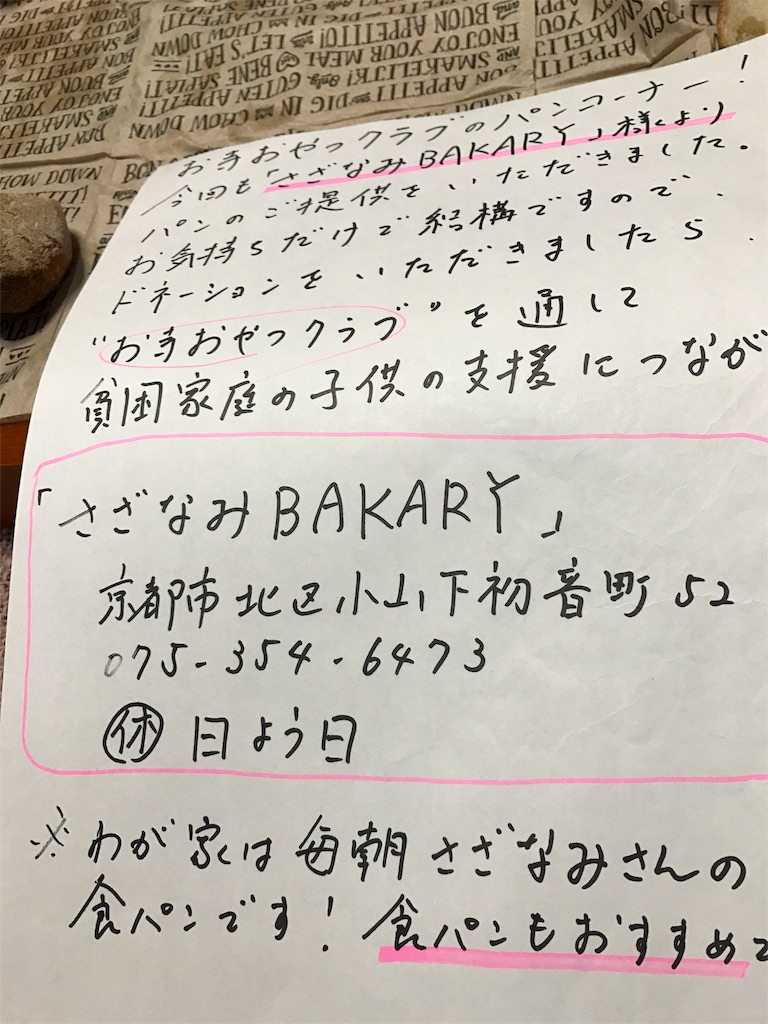 お寺おやつクラブのパンコーナー!
今回も「さざなみBAKARY」様より
パンのご提供をいただきました。
お気持ちだけで結構ですので、
ドネーションをいただきましたら、
"お寺おやつクラブ"を通して
貧困家庭の子供の支援につなが
「さざなみBAKARY」
京都市北区小山下初音町52
075-354-6473
㊡ 日よう日
※わが家は毎朝さざなみさんの
食パンです! 食パンもおすすめで